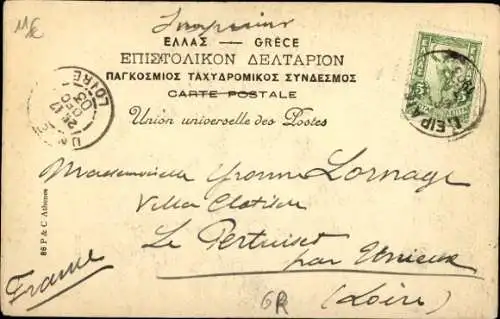 Imprimé
ΕΛΛΑΣ — GRÈCE
ΕΠΙΣΤΟΛΙΚΟΝ ΔΕΛΤΑΡΙΟΝ
ΠΑΓΚΟΣΜΙΟΣ ΤΑΧΥΔΡΟΜΙΚΟΣ ΣΥΝΔΕΣΜΟΣ
CARTE POSTALE
Union universelle des Postes
LOIRE
ΠΕΙΡΑΙ
Mademoiselle Yvonne Lornage
Villa Clotilde
Le Pertuiset
par Unieux
(Loire)
France
86 P & C Athènes
6R